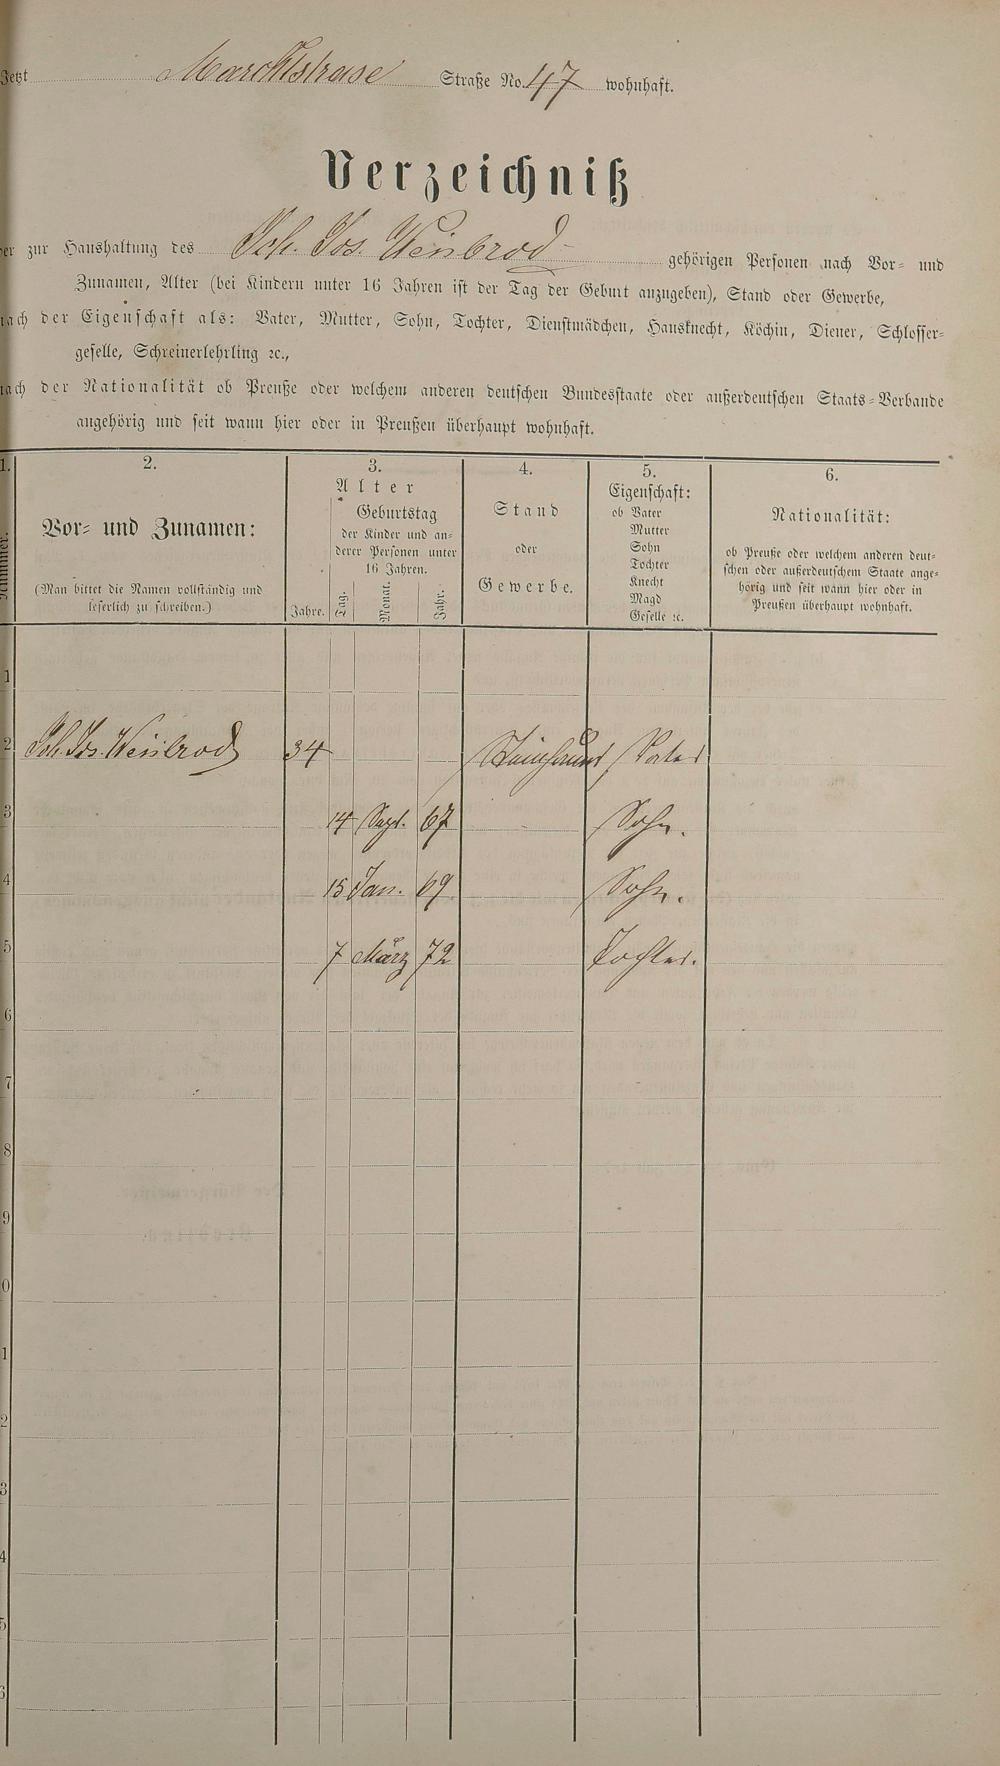 Jetzt Marcktstrase Straße No. 47 wohnhaft.
Verzeichniß
er zur Haushaltung des Joh. Jos. Weisbrod gehörigen Personen nach Vor- und
Zunamen, Alter (bei Kindern unter 16 Jahren ist der Tag der Geburt anzugeben), Stand oder Gewerbe,
nach der Eigenschaft als: Vater, Mutter, Sohn, Tochter, Dienstmädchen, Hausknecht, Köchin, Diener, Schlosser-
geselle, Schreinerlehrling ꝛc.,
nach der Nationalität ob Preuße oder welchem anderen deutschen Bundesstaate oder außerdeutschen Staats-Verbande
angehörig und seit wann hier oder in Preußen überhaupt wohnhaft.
1.
Nummer.
2.
Vor- und Zunamen:
(Man bittet die Namen vollständig und
leserlich zu schreiben.)
3.
Alter
Jahre.
Geburtstag
der Kinder und an-
derer Personen unter
16 Jahren.
Tag. Monat. Jahr.
4.
Stand
oder
Gewerbe.
5.
Eigenschaft:
ob Vater
Mutter
Sohn
Tochter
Knecht
Magd
Geselle ꝛc.
6.
Nationalität:
ob Preuße oder welchem anderen deut-
schen oder außerdeutschem Staate ange-
hörig und seit wann hier oder in
Preußen überhaupt wohnhaft.
1
2 Joh. Jos. Weisbrod 34 Vater
3 14 Sept. 67 Sohn.
4 15 Jan. 69 Sohn.
5 7 März 72 Tochter.
6
7
8
9
0
1
2
3
4
5
6